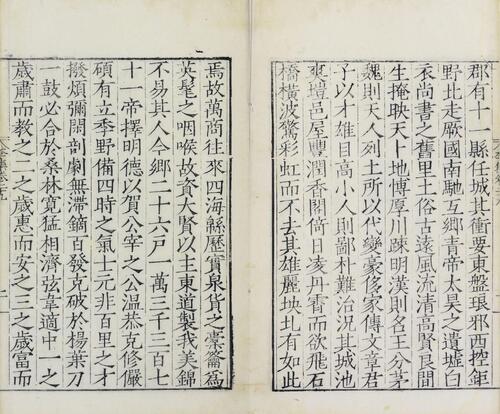 郡有十一縣任城其衝要東盤琅邪西控鉅
野北走厥國南馳互鄉青帝太昊之遺墟白
衣尚書之舊里土俗古遠風流清高賢良間
生掩映天下地愽厚川疎明漢則名王分茅
魏則天人列土所以代變豪侈家傳文章君
子以才雄自高小人則鄙朴難治況其城池
爽塏邑屋豐潤香閣倚日凌丹霄而欲飛石
橋橫波驚彩虹而不去其雄麗坱圠有如此
焉故萬商往來四海緜歷實泉貨之橐籥爲
英髦之咽喉故資大賢以主東道製我美錦
不易其人今鄉二十六戸一萬三千三百七
十一帝擇明德以賀公宰之公温恭克修儼
碩有立季野備四時之氣士元非百里之才
撥煩彌閑剖劇無滯鏑百發克破於楊葉刀
一鼓必合於桑林寬猛相濟弦韋適中一之
歲肅而教之二之歲惠而安之三之歲富而